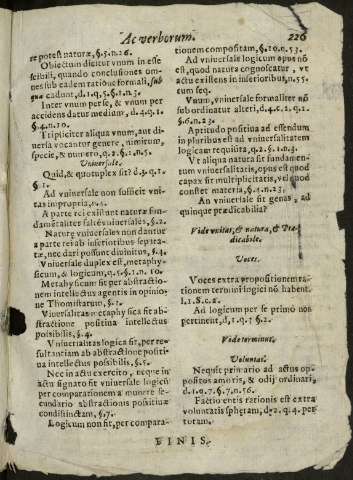 Ac verborum. 226
re potest naturæ, §.5.n.26.
Obiectum dicitur vnum in esse
scibili, quando conclusiones om-
nes sub eadem ratione formali, sub
qua cadunt, d.1.q.5.§.1.n.3.
Inter vnum per se, & vnum per
accidens datur medium, d.4.q.1.
§.4.n.10.
Tripliciter aliqua vnum, aut di-
uersa vocantur genere, nimirum,
specie, & numero, q.2.§.1.n.5.
Vniuersale.
Quid, & quotuplex sit? d.3.q.1.
§.1.
Ad vniuersale non sufficit vni-
tas in propria, n.4.
A parte rei existunt naturæ fun-
damẽtaliter saltẽ vniuersales, §.2.
Naturæ vniuersales non dantur
a parte rei ab inferioribus separa-
tæ, nec dari possunt diuinitus, §.4.
Vniuersale duplex est, metaphy-
sicum, & logicum, q.5.§.1.n.10.
Metaphysicum fit per abstractio-
nem intellectus agentis in opinio-
ne Thomistarum, §.2.
Viuersalitas metaphysica fit ab-
stractione positiua intellectus
poisibilis, §.4.
Vniuersalitas logica fit, per re-
sultantiam ab abstractione positi-
ua intellectus possibilis, §.5.
Nec in actu exercito, neque in
actu signato fit vniuersale logicũ
per comparationem a munere se-
cundario abstractionis positiuæ
condistinctam, §.7.
Logicum non fit, per compara-
tionem compositam, §.10.n.53.
Ad vniuersale logicum opus nõ
est, quod natura cognoscatur, vt
actu existens in inferioribus, n.55.
cum seq.
Vnum vniuersale formaliter nõ
subordinatur alteri, d.4.c.2.q.2.
§.6.n.23.
Aptitudo positiua ad essendum
in pluribus est ad vniuersalitatem
logicam requisita, q.2.§.1.n.4.
Vt aliqua natura sit fundamen-
tum vniuersalitatis, opus est quod
capax sit multiplicitatis, vel quod
constet materia, §.4.n.23.
An vniuersale sit genus, ad
quinque prædicabilia?
Vide vnitas, & natura, & Præ-
dicabile.
Voces.
Voces extra propositionem ra-
tionem termini logici nõ habent.
l.1.S.c.2.
Ad logicum per se primo nos
pertinent, d.1.q.1 §.2.
Vide terminus.
Voluntas.
Nequit primario ad actus op-
positos amoris, & odij ordinari,
d.1.q.7.§.7.n.56.
Factio entis rationis est extra
voluntatis spheram, d.2.q.4. per
totam.
FINIS.